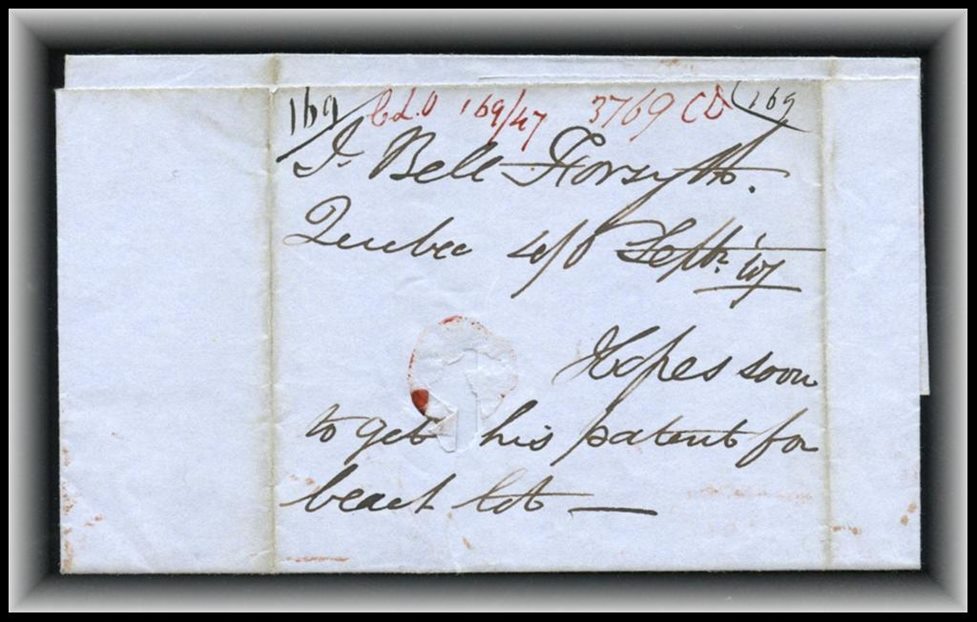 169 C.L.O 169/47 3769 CD 169
J. Bell Forsyth.
Quebec Septr. 47
Hopes soon
to get his patent for
beach lot —